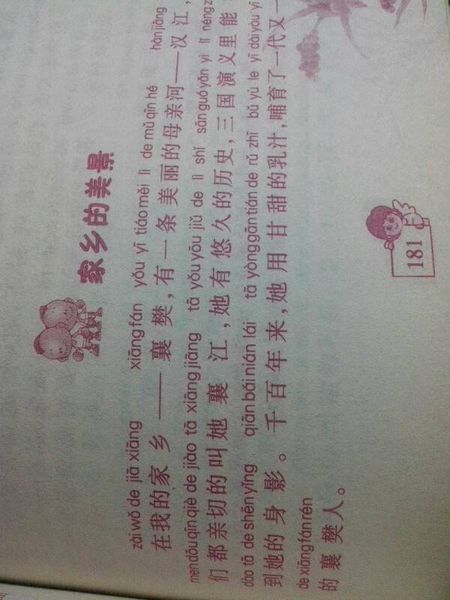 家乡的美景
zài wǒ de jiā xiāng xiāng fán yǒu yī tiáo měi lì de mǔ qīn hé hàn jiāng
在我的家乡——襄樊,有一条美丽的母亲河——汉江,
men dōu qīn qiè de jiào tā xiāng jiāng tā yǒu yōu jiǔ de lì shǐ sān guó yǎn yì lǐ néng
们都亲切的叫她襄江,她有悠久的历史,三国演义里能
dào tā de shēn yǐng qiān bǎi nián lái tā yòng gān tián de rǔ zhī bǔ yù le yī dài yòu yī
到她的身影。千百年来,她用甘甜的乳汁,哺育了一代又一
de xiāng fán rén
的襄樊人。
181